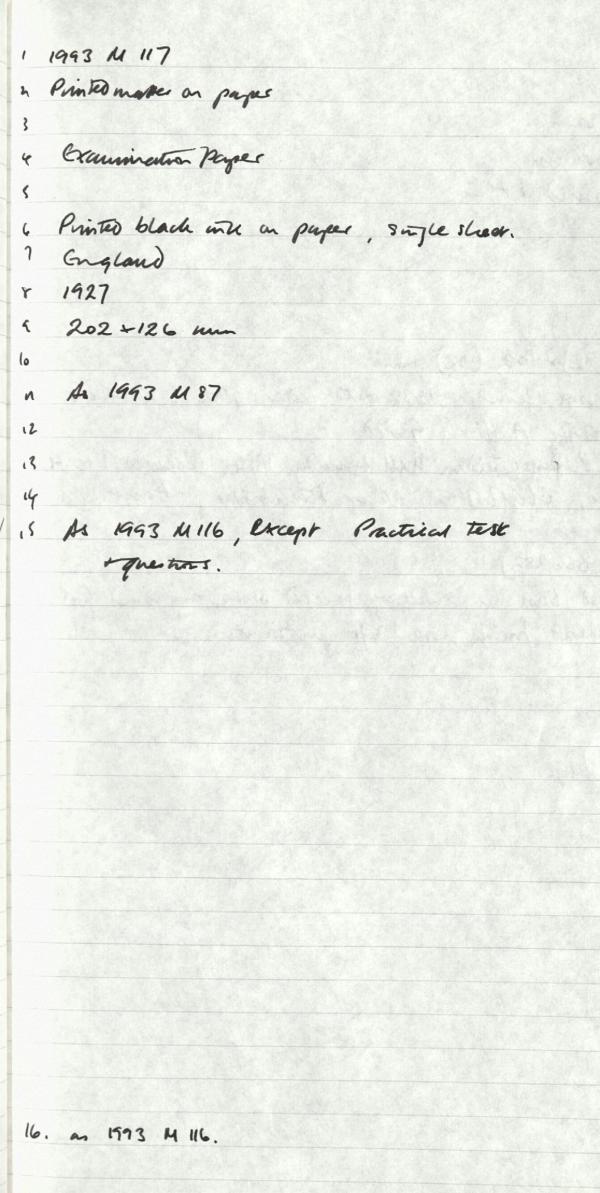 1 1993 M 117
2 Printed matter on paper
3
4 Examination Paper
5
6 Printed black ink on paper, single sheet.
7 England
8 1927
9 202 x 126 mm
10
11 As 1993 M 87
12
13
14
15 As 1993 M 116, Except Practical test
+ questions.
16. as 1993 M 116.